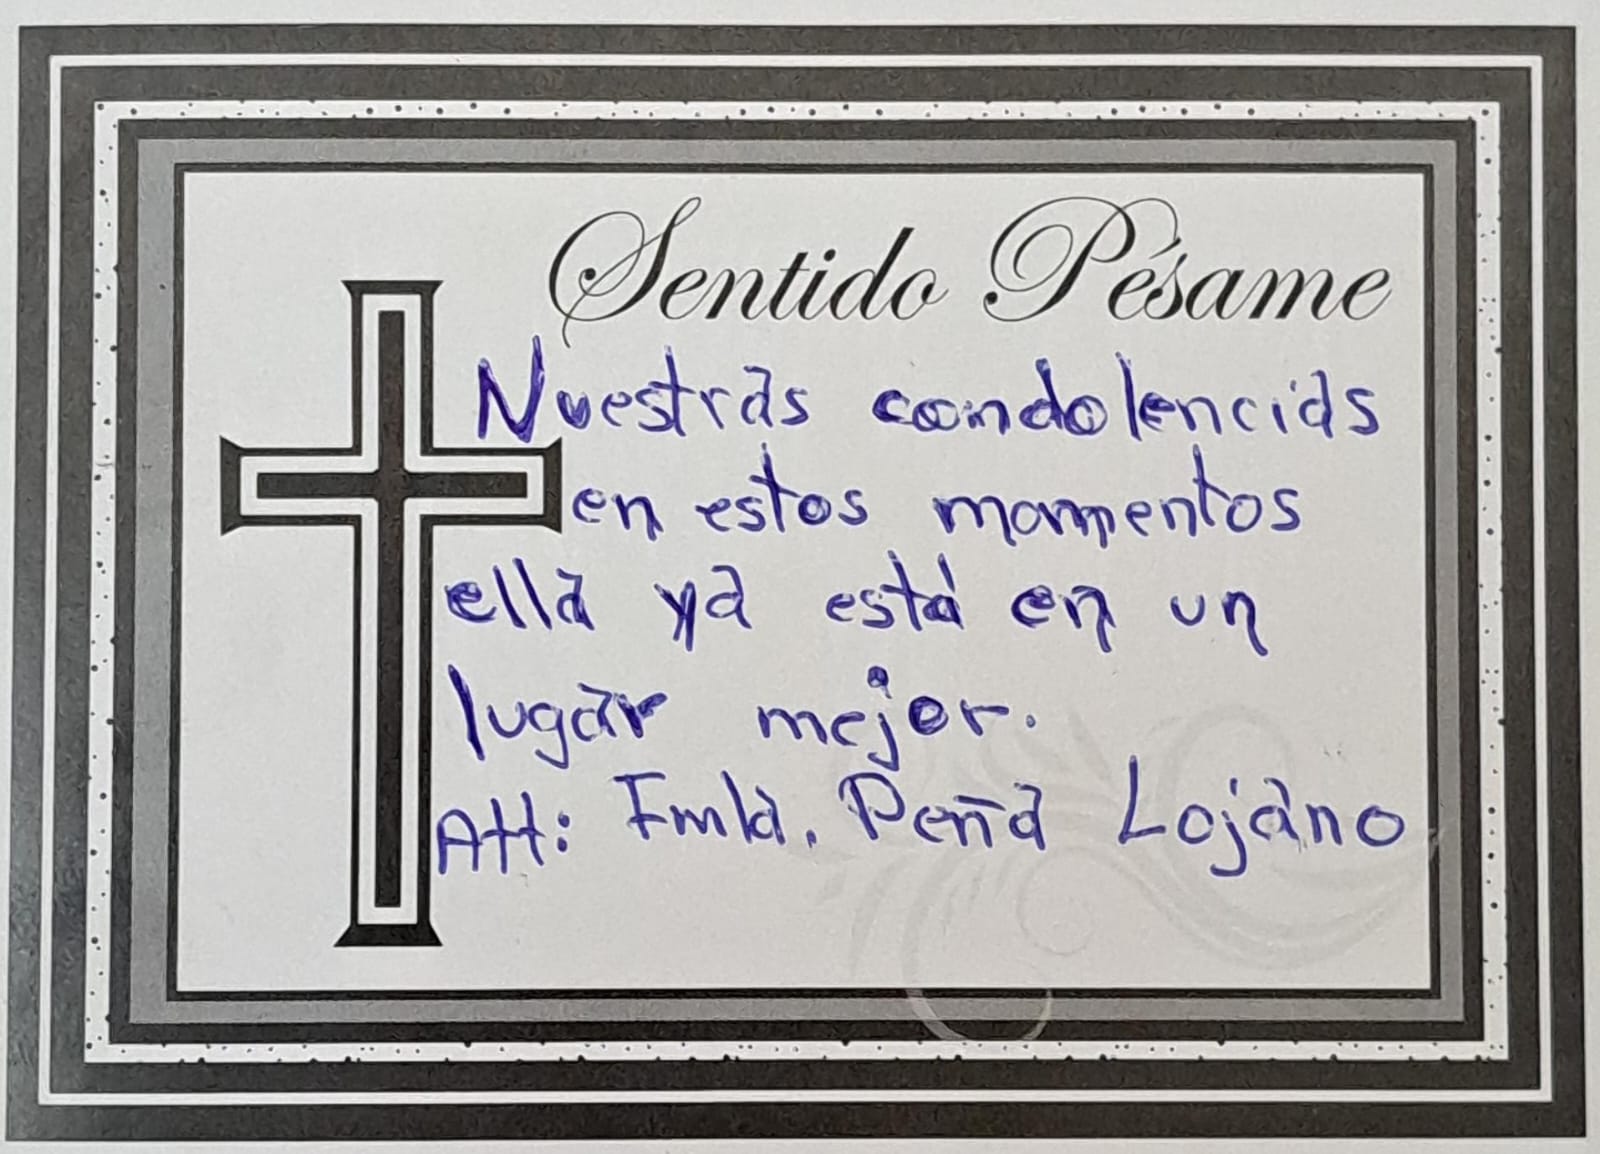 Sentido Pésame
Nuestras condolencias
en estos momentos
ella ya está en un
lugar mejor.
Att: Fmla. Peña Lojano